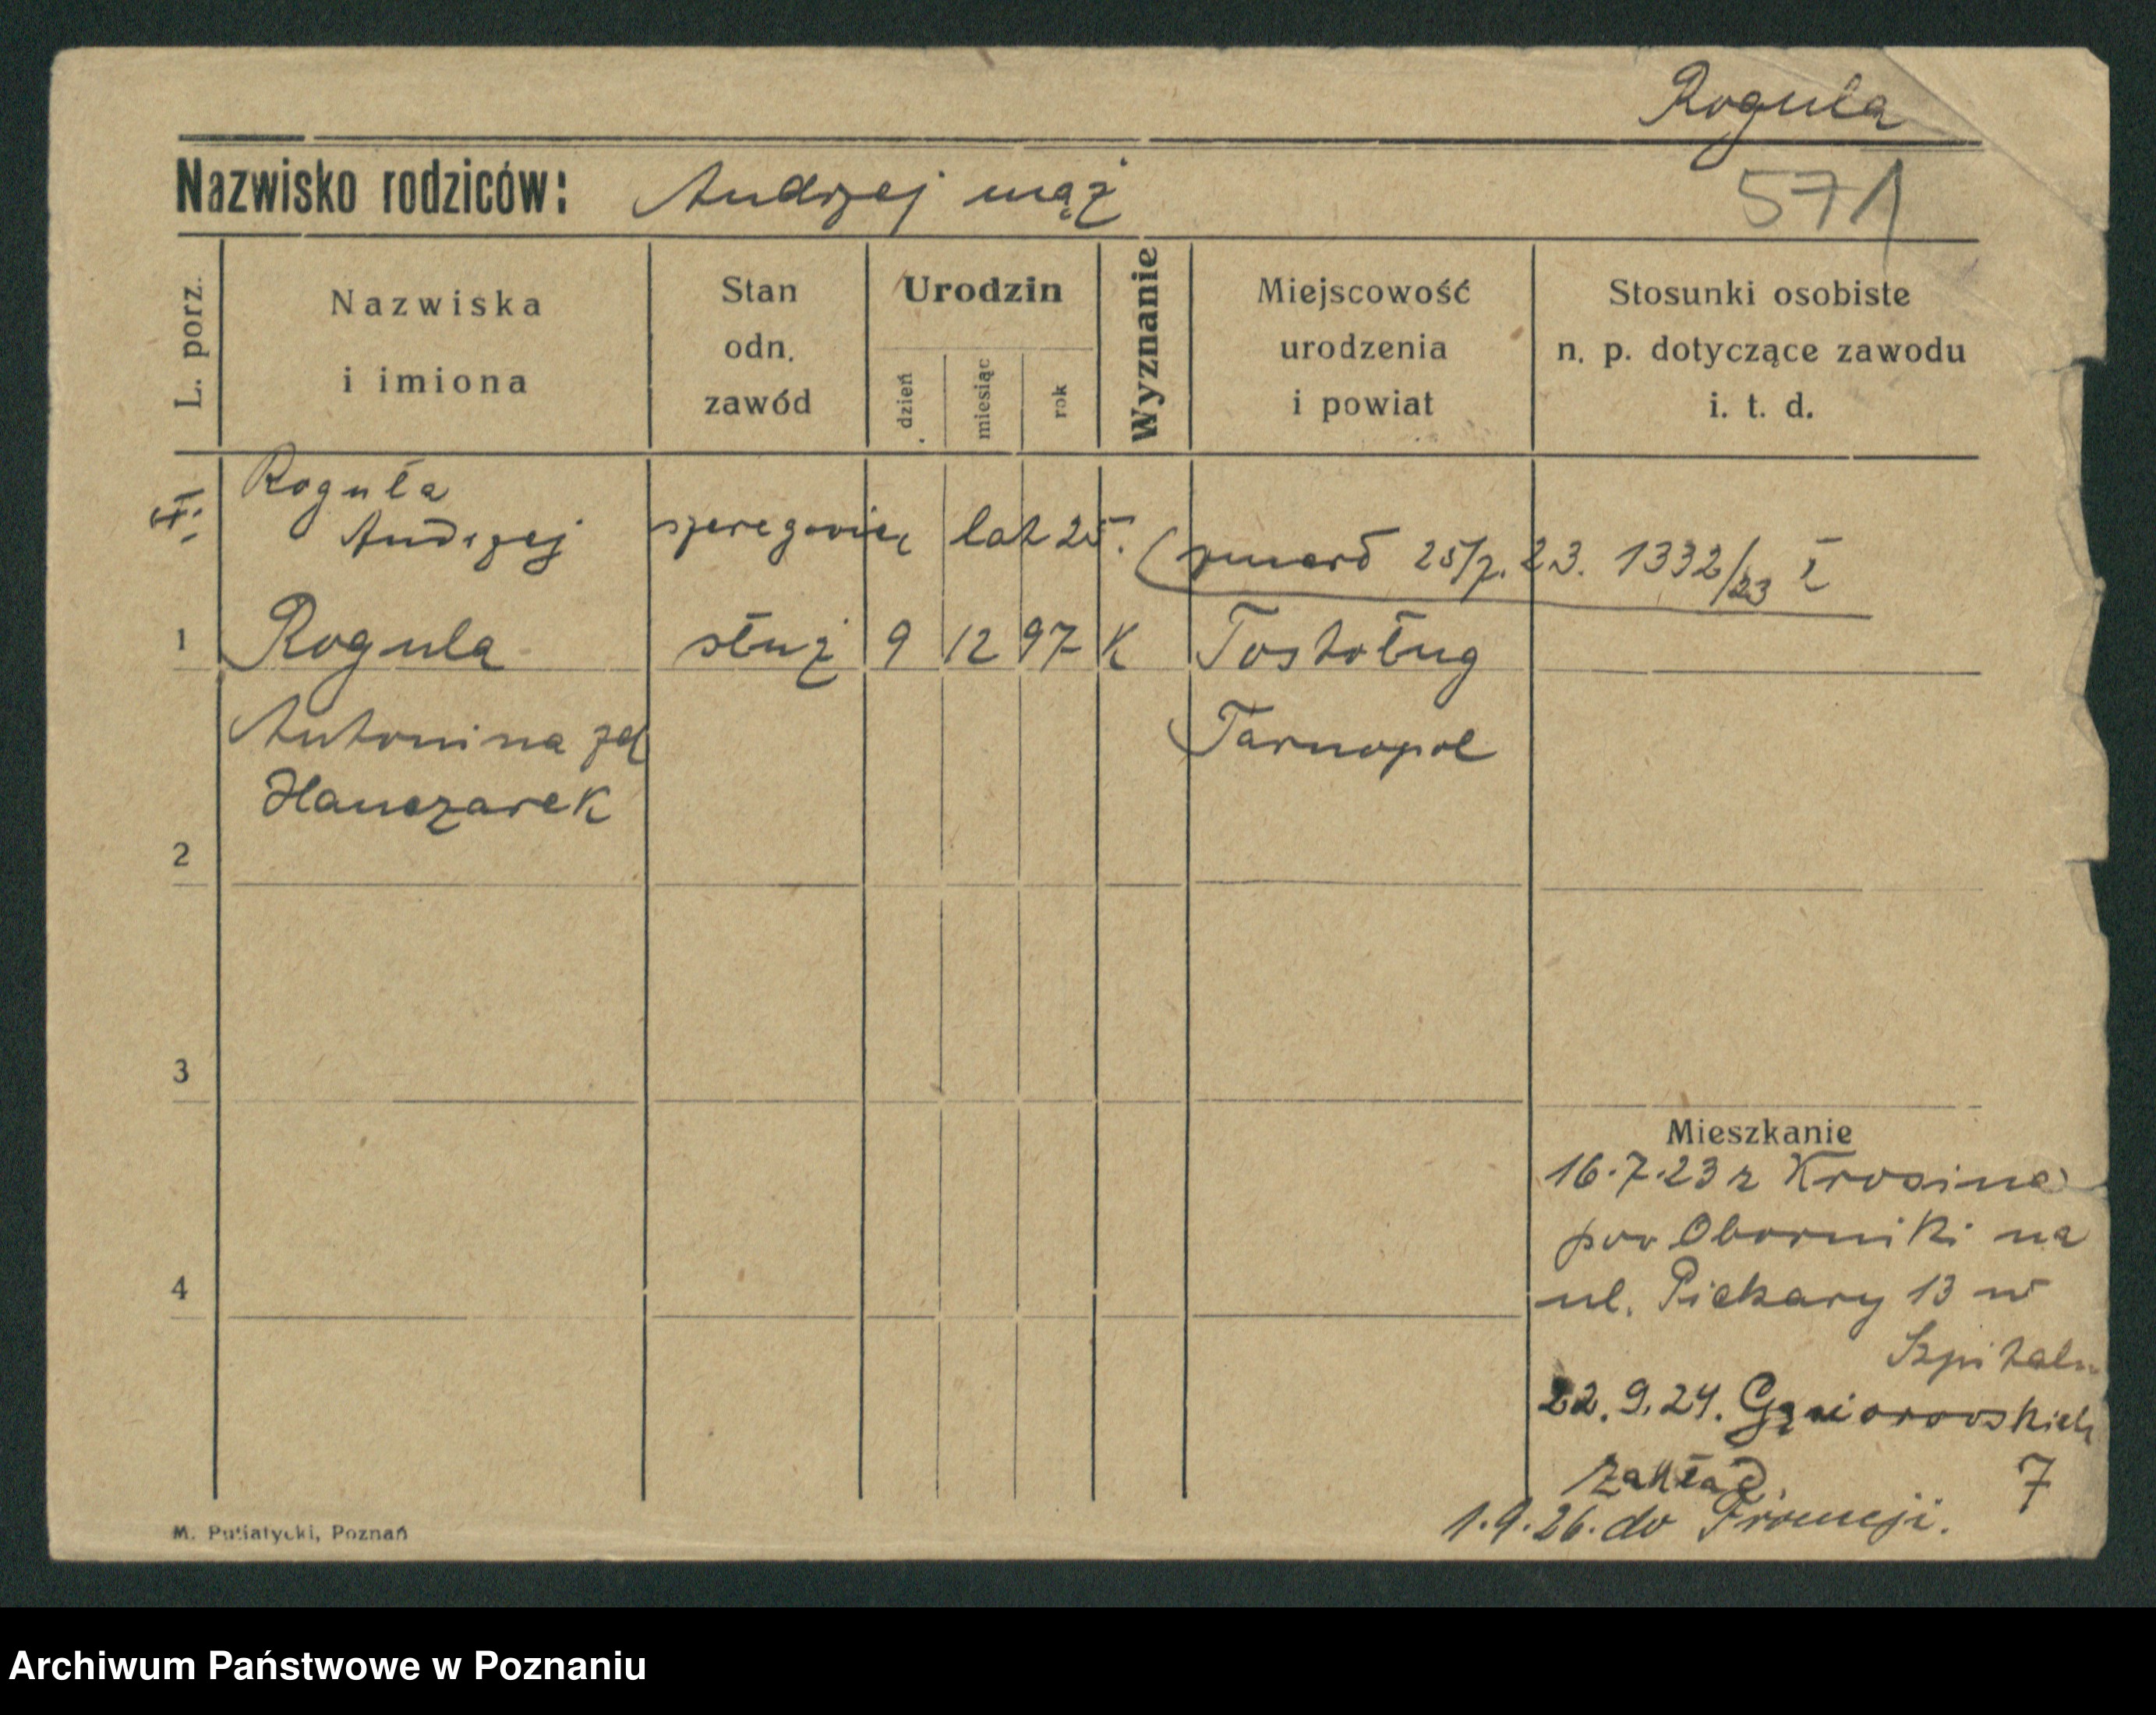 Rogula
Nazwisko rodziców: Andrzej mąż
571
L. porz.
Nazwiska
i imiona
Stan
odn.
zawód
Urodzin
dzień
miesiąc
rok
Wyznanie
Miejscowość
urodzenia
i powiat
Stosunki osobiste
n. p. dotyczące zawodu
i. t. d.
Roguła
Andrzej szeregowiec lat 25. (zmarł 25/7. 23. 1332/23 I
1 Rogula służ 9 12 97 K Tostoług
Antonina zd Tarnopol
Hanczarek
2
3
Mieszkanie
16.7.23 z Krosina
pow Oborniki na
4
ul. Piekary 13 w
Szpitalu
22. 9. 24. Gąsiorowskich
Zakład 7
1.9.26. do Francji.
M. Putiatycki, Poznań
Archiwum Państwowe w Poznaniu